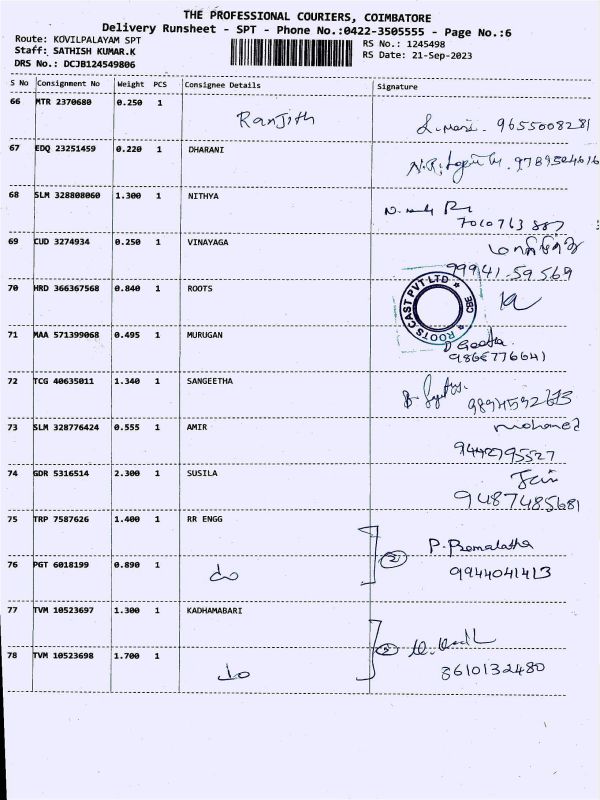 THE PROFESSIONAL COURIERS, COIMBATORE
Delivery Runsheet - SPT - Phone No.:0422-3505555 - Page No.:6
Route: KOVILPALAYAM SPT
RS No.: 1245498
Staff: SATHISH KUMAR.K
RS Date: 21-Sep-2023
DRS No.: DCJB124549806
S No Consignment No Weight PCS Consignee Details Signature
66 MTR 2370680 0.250 1 Ranjith 9655008281
67 EDQ 23251459 0.220 1 DHARANI
68 SLM 328808060 1.300 1 NITHYA
7010763887
69 CUD 3274934 0.250 1 VINAYAGA
99941-59569
70 HRD 366367568 0.840 1 ROOTS
ROOTS CAST PVT LTD CBE
71 MAA 571399068 0.495 1 MURUGAN Geetha
9866776641
72 TCG 40635011 1.340 1 SANGEETHA
73 SLM 328776424 0.555 1 AMIR mohamed
9442795527
74 GDR 5316514 2.300 1 SUSILA
9487485681
75 TRP 7587626 1.400 1 RR ENGG P. Premalatha
76 PGT 6018199 0.890 1 do 2 9944041413
77 TVM 10523697 1.300 1 KADHAMABARI
78 TVM 10523698 1.700 1 do 8610132480